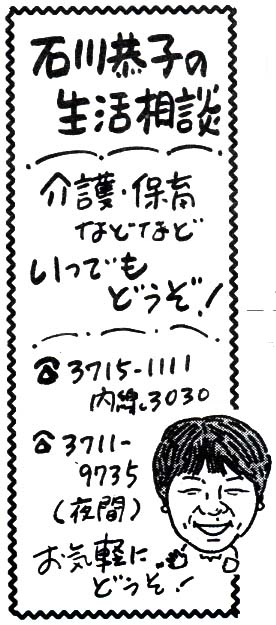 石川恭子の
生活相談
介護・保育
などなど
いつでも
どうぞ!
☎3715-1111
内線3030
☎3711-
9735
(夜間)
お気軽に
どうぞ!